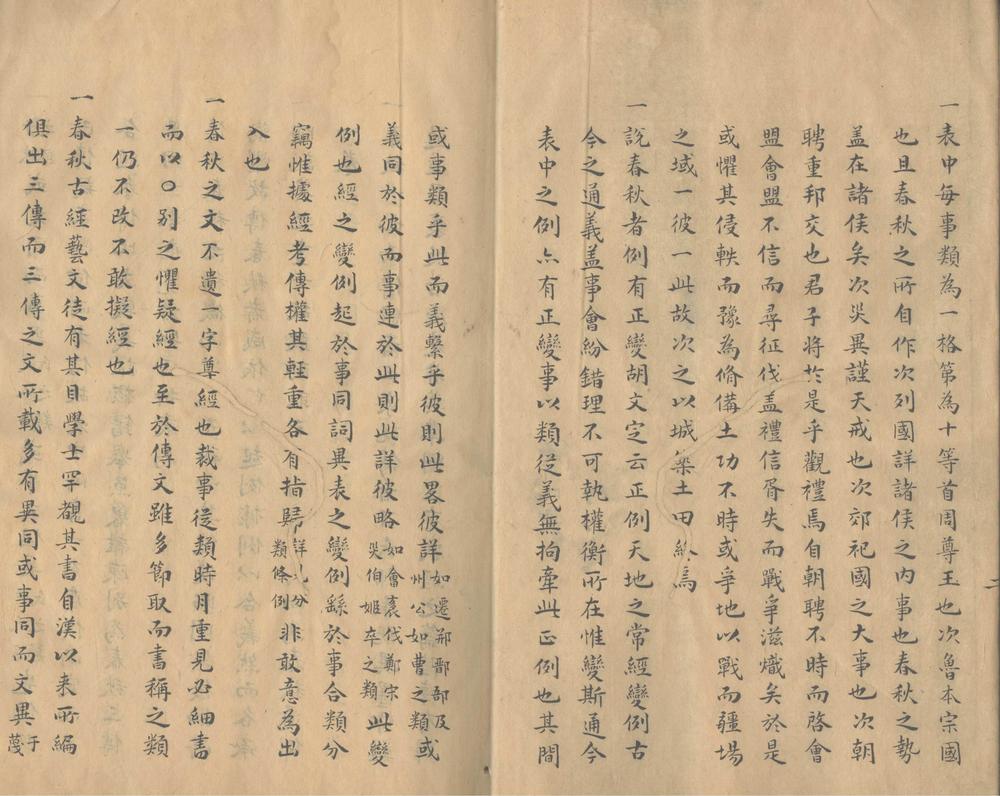 一表中每事類為一格第為十等首周尊王也次魯本宗國
也且春秋之所自作次列國詳諸侯之内事也春秋之勢
盖在諸侯矣次災異謹天戒也次郊祀國之大事也次朝
聘重邦交也君子將扵是乎觀禮焉自朝聘不時而啓會
盟會盟不信而尋征伐盖禮信胥失而戰爭滋熾矣於是
或懼其侵軼而豫為脩備土功不時或爭地以戰而疆場
之域一彼一此故次之以城築土田終焉
一說春秋者例有正變胡文定云正例天地之常經變例古
今之通義盖事會紛錯理不可執權衡所在惟變斯通今
表中之例亦有正變事以類從義無拘牽此正例也其間
或事類乎此而義繫乎彼則此畧彼詳如遷郱鄑郚及州公如曹之類或
義同於彼而事連於此則此詳彼略如會袲伐鄭宋災伯姬卒之類此變
例也經之變例起於事同詞異表之變例繇於事合類分
竊惟據經考傳權其輕重各有指歸詳見分類條例非敢意為出
入也
一春秋之文不遺一字尊經也裁事從類時月重見必細書
而以○別之懼疑經也至於傳文雖多節取而書稱之類
一仍不改不敢擬經也
一春秋古經藝文徒有其目學士罕覩其書自漢以来所編
俱出三傳而三傳之文所載多有異同或事同而文異于蔑
二